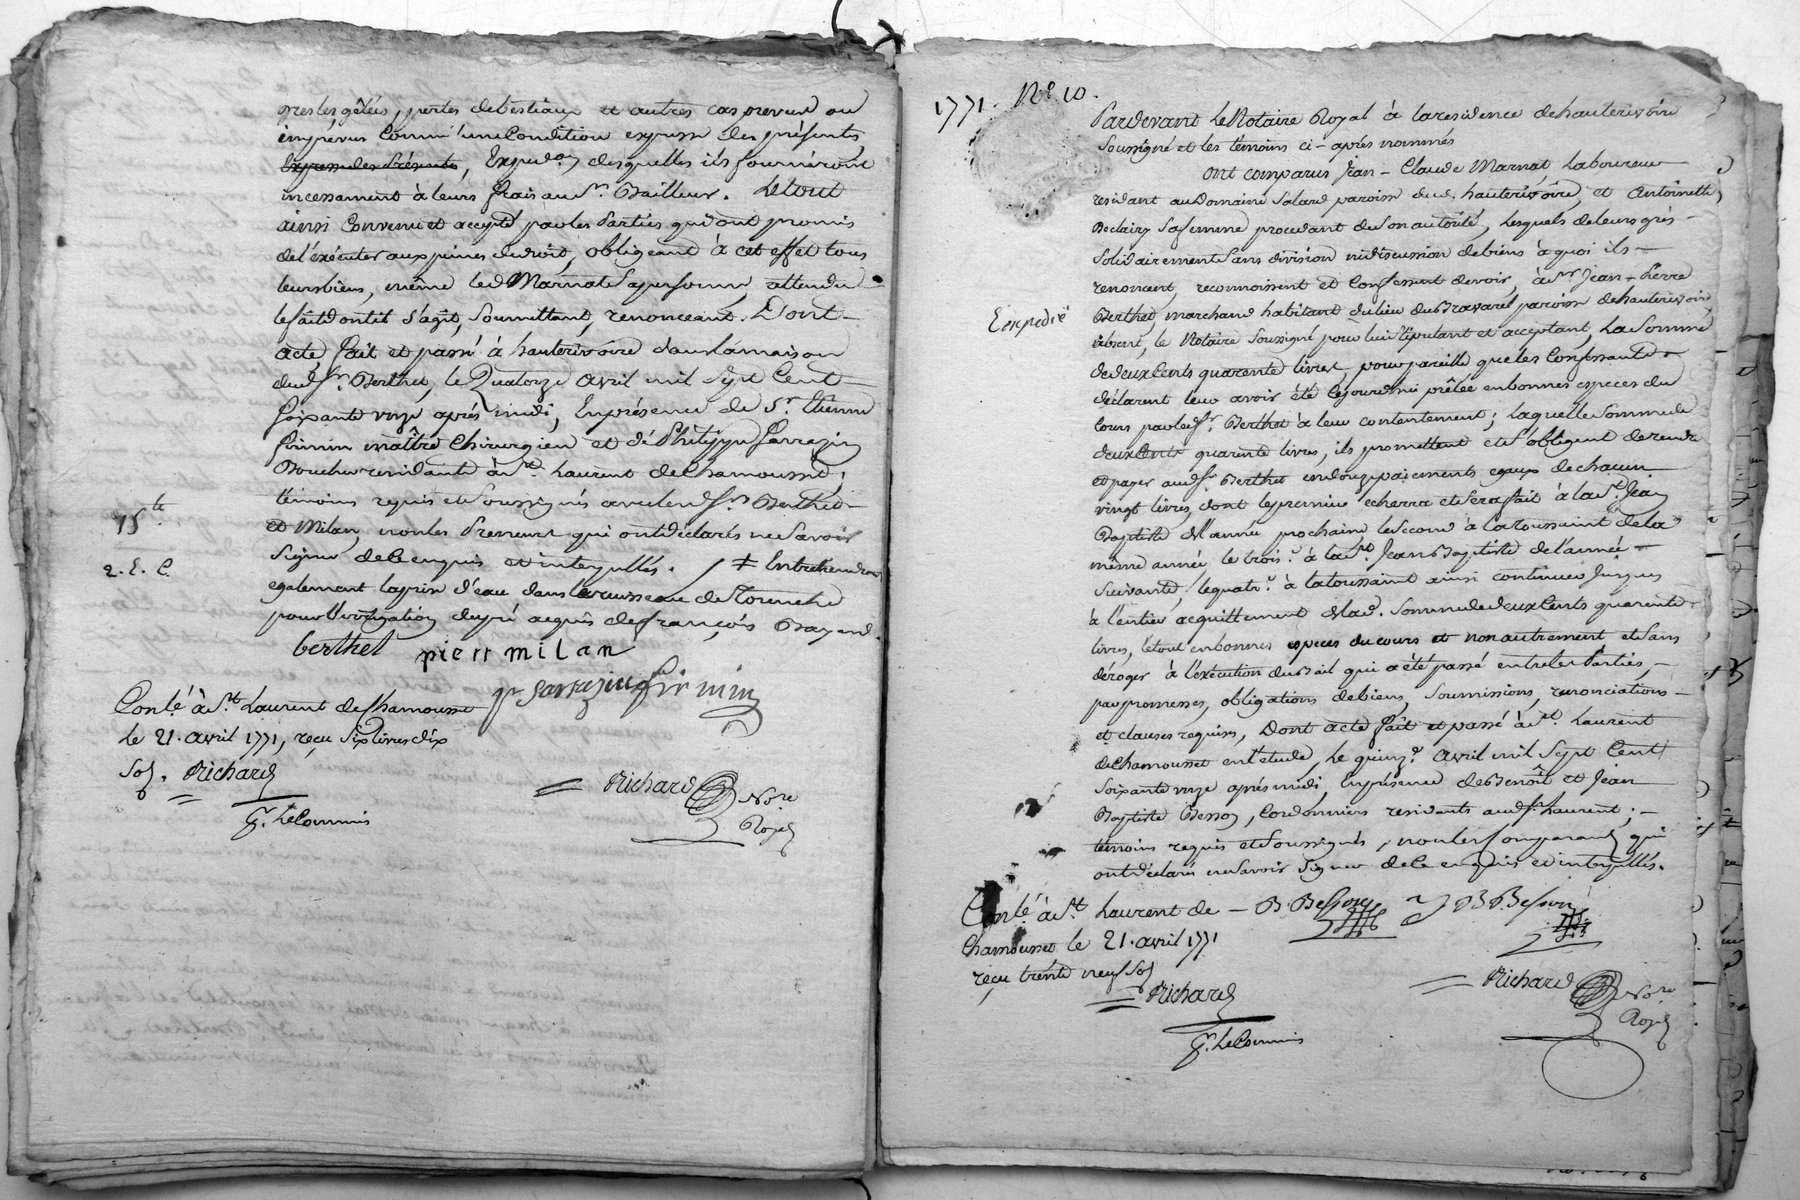 gresles, gêlées, pertes de bestiaux et autres cas prevus ou
imprévus comm' une condition expresse des présentes,
expresse des Présentes, Expedon desquelles ils fourniront
incessament à leurs frais au Sr. Bailleur. Le tout
ainsi convenu et accepté par les Parties qui ont promis
de l'éxécuter aux peines du droit, obligeant à cet effet tous
leurs biens, même led Marnat sa personne, attendu
le fait dont il s'agit, Soumettant, renonceant. Dont
acte, fait et passé à hauterivoire dans la maison
dud. Sr. Berthet, le Quatorze avril mil Sept Cent
Soixante onze après midi, En présence de Sr. Etienne
firmin maître chirurgien et de Philippe Sarrazin
Boucher residants à St. Laurent de Chamousset,
témoins requis et Soussignés avec lesd. Srs Berthet
et Milan, non les Preneurs qui ont déclarés ne Savoir
Signer de ce enquis et interpellés. / ≠ Entretiendront
egalement la prise d'eau dans le ruisseau de
pour l'irrigation du pré acquis de françois Bayard.
15te
2. E. C.
berthet pierr milan
p Sarrazin firmin
Conlé. à St. Laurent de Chamousset
le 21. avril 1771, reçu Six livres dix
Sols. Richard
Gr. Le Commis
Richard Nore
Royal
1771. No. 10.
Pardevant Le Notaire Royal à la residence de hauterivoire
Soussigné et les témoins ci-après nommés
Ont comparus Jean-Claude Marnat, Laboureur
residant au Domaine Salard paroisse dud. hauterivoire, et Antoinette
Beclairy Sa femme procedant de Son autorité, Lesquels de leurs grés
Solidairement Sans division ni discussion de biens à quoi ils
renoncent, reconnoissent et confessent devoir, à Sr Jean-Pierre
Berthet, marchand habitant du lieu du Bravarel paroisse de hauterivoire,
Expedié
absent, le Notaire Soussigné pour lui Stipulant et acceptant, La Somme
de deux Cents quarente livres, pour pareille que les Confessants
déclarent leur avoir été cejourd'hui prêtée en bonnes especes du
cours par led. Sr. Berthet à leur contentement; laquelle Somme de
deux Cents quarente livres, ils promettent et S'obligent de rendre
et payer aud. Sr Berthet en douze paiements egaux de chacun
vingt livres, dont le premier echerra et Sera fait à la St. Jean
Baptiste de l'année prochaine, le Second à la toussaint de la
même année, le trois.e à la St Jean Baptiste de l'année
Suivante, le quatr.e à la toussaint ainsi continuer jusques
à l'entier acquittement de lad. Somme de deux Cents quarente
livres, le tout en bonnes especes du cours et non autrement et Sans
déroger à l'éxécution du Bail qui a été passé entre les Parties,
par promesses, obligations de biens, Soumissions, renonciations
et clauses requises, Dont acte fait et passé à St. Laurent
de Chamousset en l'étude, Le quinze avril mil Sept Cent
Soixante onze après midi, En présence de Benoît et Jean
Baptiste Besson, Cordonniers residants aud. St Laurent;
témoins requis et Soussignés, non les Comparants qui
ont déclarés ne Savoir Signer de ce enquis et interpellés.
Conlé. à St. Laurent de
B. Besson J B Besson
Chamousset le 21. avril 1771
reçu trente neuf Sols
Richard
Gr. Le Commis
Richard Nore
Royal